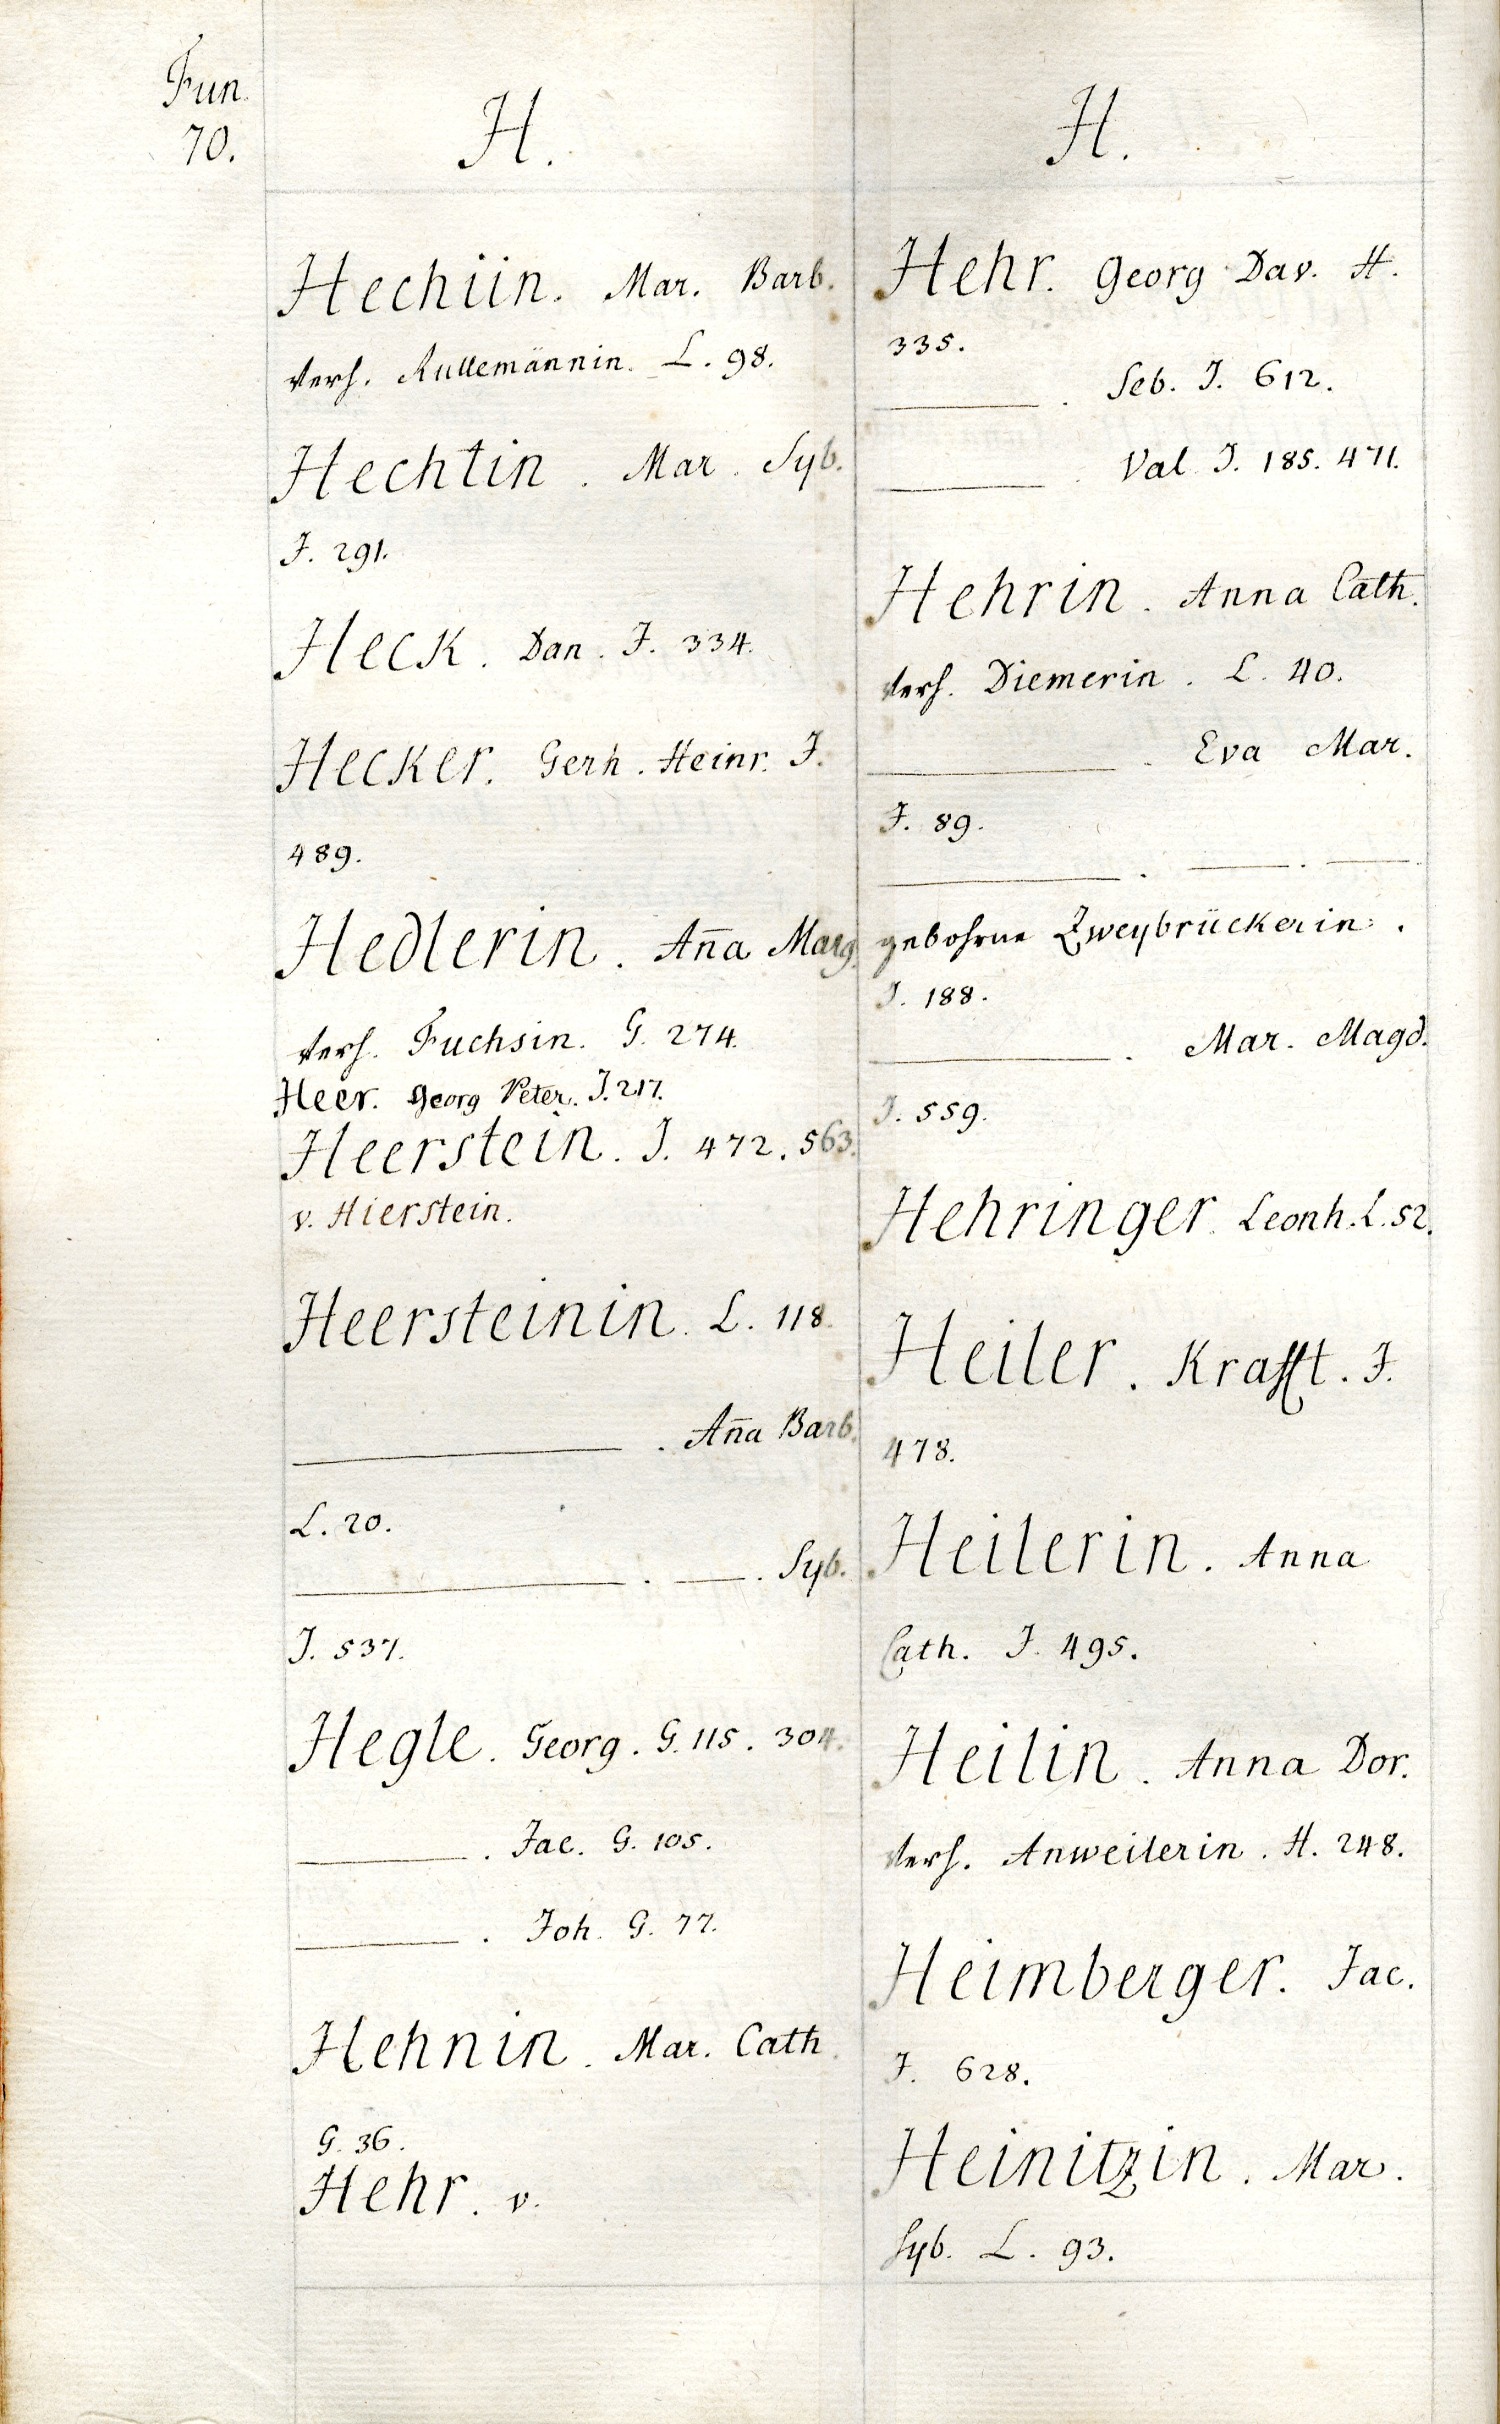 Fun.
70.
H.
Hechiin. Mar. Barb.
verh. Rullemännin. L. 98.
Hechtin. Mar. Syb.
J. 291.
Heck. Dan. J. 334.
Hecker. Gerh. Heinr. J.
489.
Hedlerin. Aña Marg.
verh. Fuchsin. G. 274.
Heer. Georg Peter. J. 217.
Heerstein. J. 472. 563.
v. Hierstein.
Heersteinin. L. 118.
———. Aña Barb.
L. 20.
———. —. Syb.
J. 537.
Hegle. Georg. G. 115. 304.
———. Jac. G. 105.
———. Joh. G. 77.
Hehnin. Mar. Cath.
G. 36.
Hehr. v.
H.
Hehr. Georg Dav. H.
335.
———. Seb. J. 612.
———. Val. J. 185. 471.
Hehrin. Anna Cath.
verh. Diemerin. L. 40.
———. Eva Mar.
J. 89.
———. ——. ——.
gebohrne Zweybrückerin.
J. 188.
———. Mar. Magd.
J. 559.
Hehringer. Leonh. L. 52.
Heiler. Krafft. J.
478.
Heilerin. Anna
Cath. J. 495.
Heilin. Anna Dor.
verh. Anweilerin. H. 248.
Heimberger. Jac.
J. 628.
Heinitzin. Mar.
Syb. L. 93.